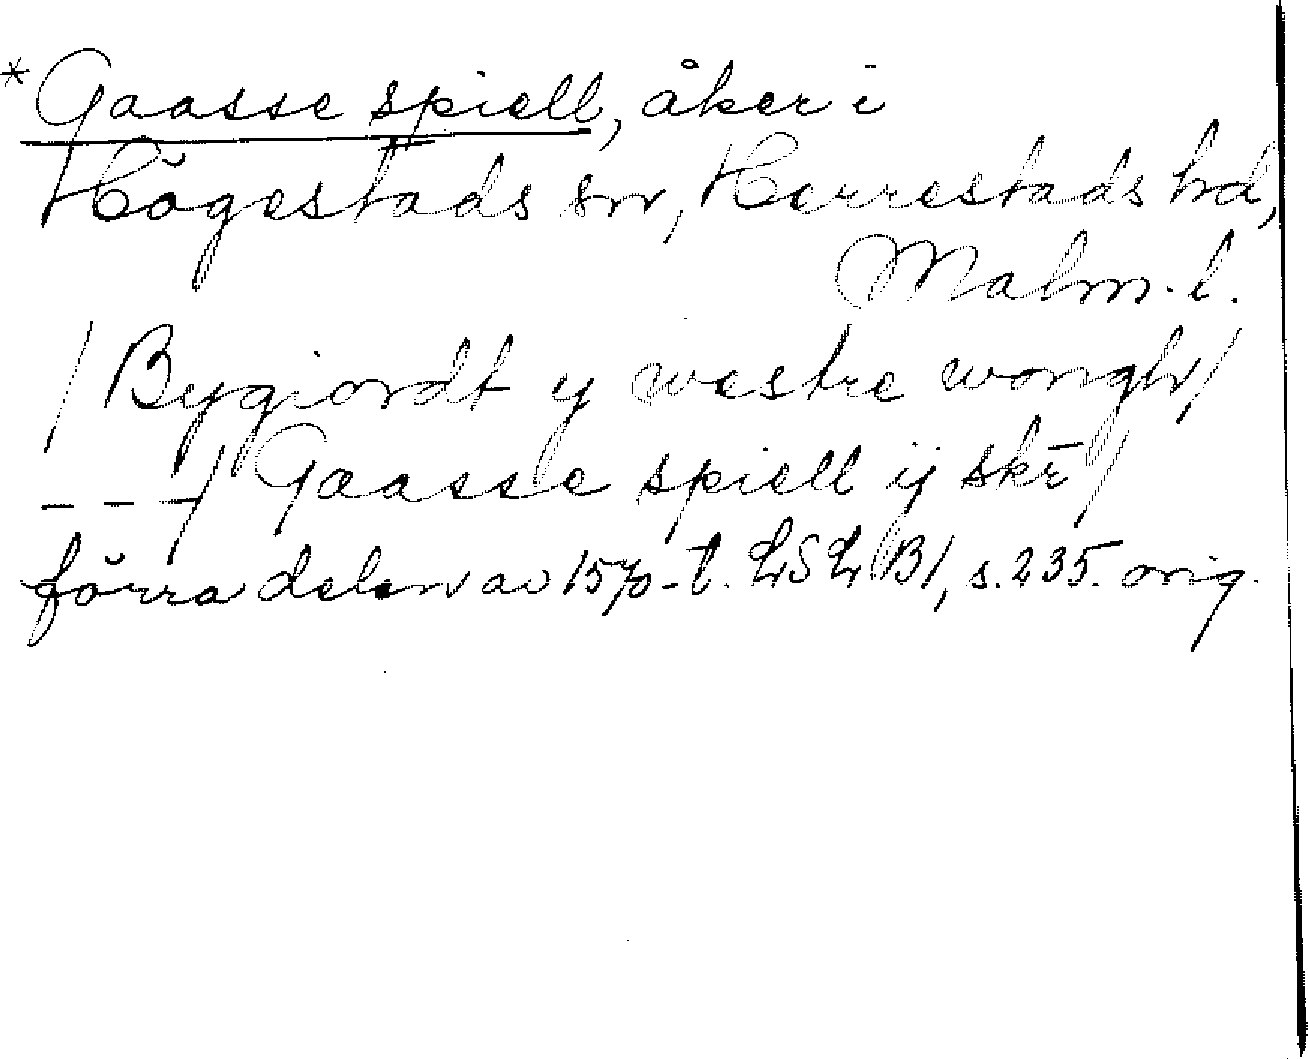 * Gaasse spiell, åker i
Högestads sn, Herrestads hd,
Malm. l.
/ Bygiordt y westre wongh /
- - - / Gaasse spiell ij skr̄ /
förra delen av 1570-t. LSL B1, s. 235. orig.